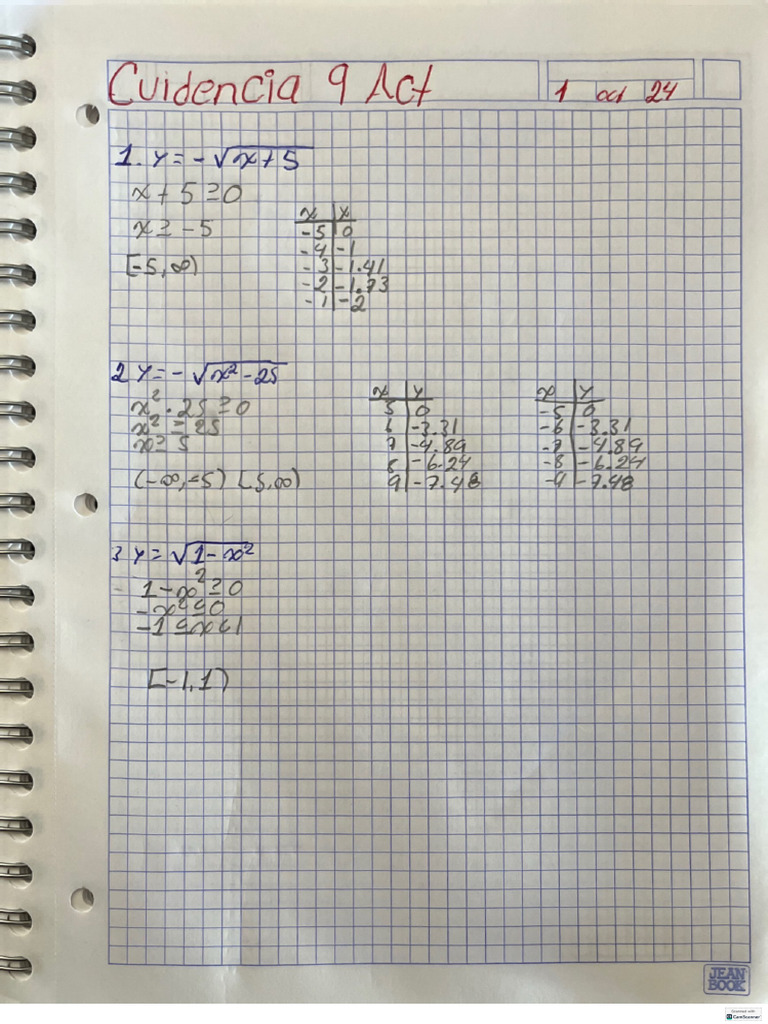 Evidencia 9 Act
1 oct 24
1. y = -√x+5
x + 5 ≥ 0
x ≥ -5
[-5, ∞)
x y
-5 0
-4 -1
-3 -1.41
-2 -1.73
-1 -2
2 y = -√x²-25
x² - 25 ≥ 0
x² ≥ 25
x ≥ 5
(-∞, -5) [5, ∞)
x y
5 0
6 -3.31
7 -4.89
8 -6.24
9 -7.48
x y
-5 0
-6 -3.31
-7 -4.89
-8 -6.24
-9 -7.48
3 y = √1-x²
1 - x² ≥ 0
-x² ≤ 0
-1 ≤ x < 1
[-1, 1)
JEAN
BOOK
CamScanner